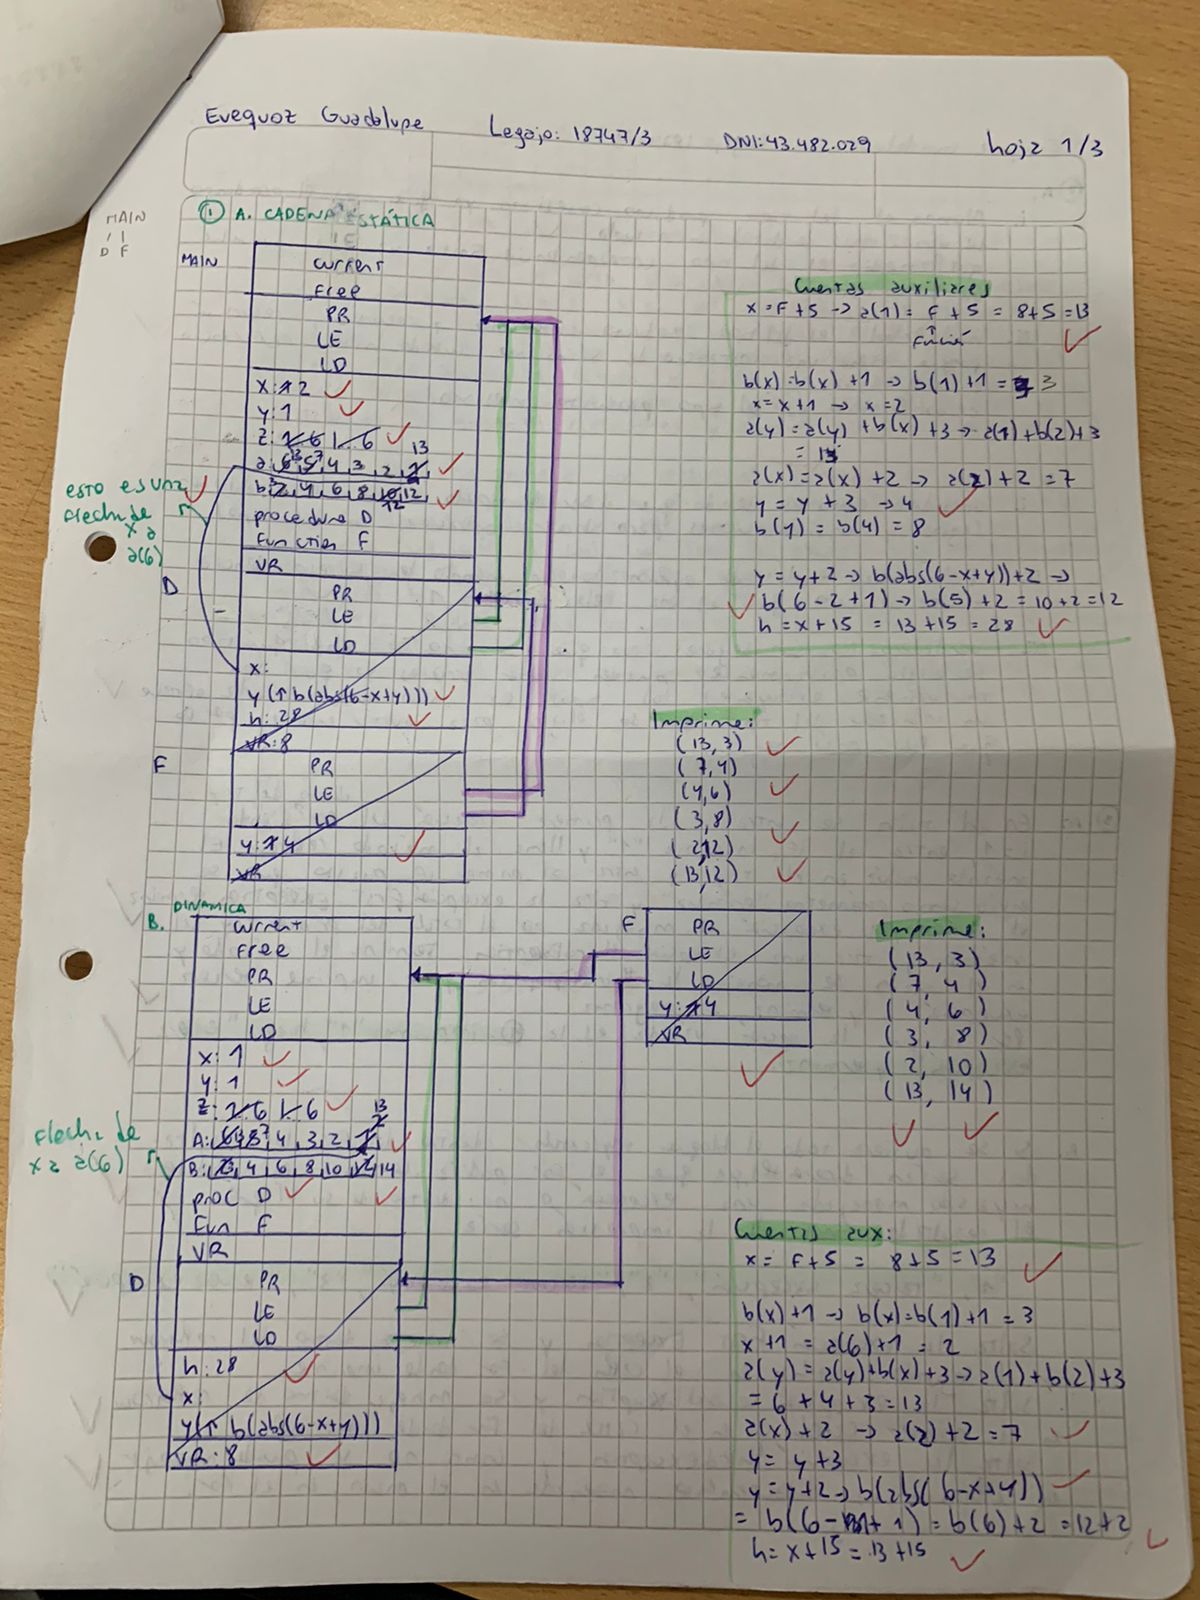 Evequoz Guadalupe Legajo: 18747/3 DNI: 43.482.029 hoja 1/3
MAIN
D F
① A. CADENA ESTÁTICA
MAIN
current
Free
PR
LE
LD
x: 1 2
y: 1
z: 1 6 1 6
a: 6 13 5 7, 4, 3, 2, 1 13
b: 2 3, 4, 6, 8, 10 12, 12
procedure D
Function F
VR
esto es una
flecha de
x a
a(6)
D
PR
LE
LD
x:
y (↑ b(abs(6-x+y)))
h: 28
VR: 8
F
PR
LE
LD
y: 1 4
VR
Cuentas auxiliares
x = F+5 → a(1) = F + 5 = 8+5 = 13
↑
función
b(x) = b(x) + 1 → b(1) + 1 = 3
x = x+1 → x = 2
a(y) = a(y) + b(x) + 3 → a(1) + b(2) + 3
= 13
a(x) = a(x) + 2 → a(2) + 2 = 7
y = y + 3 → 4
b(y) = b(4) = 8
y = y+2 → b(abs(6-x+y)) + 2 →
b(6-2+1) → b(5) + 2 = 10+2 = 12
h = x + 15 = 13 + 15 = 28
Imprime:
(13, 3)
(7, 4)
(4, 6)
(3, 8)
(2, 12)
(13, 12)
B. DINAMICA
current
Free
PR
LE
LD
x: 1
y: 1
z: 1 6 1 6
A: 6 13 5 7, 4, 3, 2, 1 2 13
B: 2 3, 4, 6, 8, 10, 12 14
proc D
Fun F
VR
Flecha de
x a a(6)
D
PR
LE
LD
h: 28
x:
y(↑ b(abs(6-x+y)))
VR: 8
F
PR
LE
LD
y: 1 4
VR
Imprime:
(13, 3)
(7, 4)
(4, 6)
(3, 8)
(2, 10)
(13, 14)
Cuentas aux:
x = F+5 = 8+5 = 13
b(x)+1 → b(x) = b(1) + 1 = 3
x + 1 = a(6) + 1 = 2
a(y) = a(y) + b(x) + 3 → a(1) + b(2) + 3
= 6 + 4 + 3 = 13
a(x) + 2 → a(2) + 2 = 7
y = y + 3
y = y + 2 → b(abs(6-x+y))
= b(6- 1 + 1) = b(6) + 2 = 12 + 2
h = x + 15 = 13 + 15